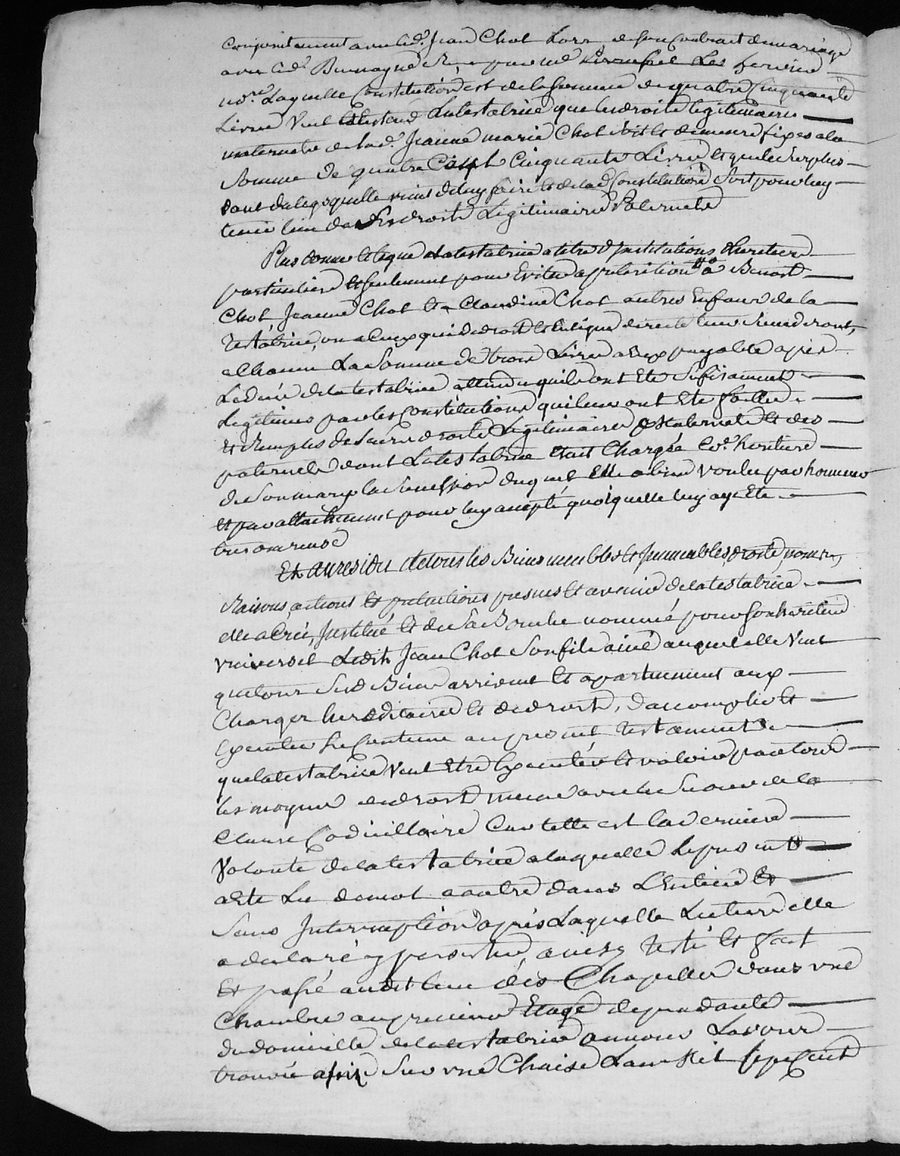 conjointement avec led. Jean Chol lors de son contrat de mariage
avec led. reçu par me les jour
nore. Laquelle Constitution est de la somme de quatre Cinquante
Livres veut lad. testatrice que les droits legitimaires
maternels de lad. Jeanne marie Chol soit et demeure fixes a la
Somme de quatre Cent Cinquante Livres et que le surplus
dont de laquelle vient de luy faire et de lad. Constitution soit pour luy
tenir lieu de ses droits Legitimaires Paternels
Plus donne et legue la testatrice a titre d'Institutions d'heritiers
particuliers et seulement pour Eviter a preterition a Benoit
Chol Jeanne Chol et Claudine Chol autres Enfans de la
testatrice, ou a Ceux qui de droit et en ligne directe leur
a Chacun La Somme de trois Livres a Eux payable après
Le decès de la testatrice attendu qu'ils ont Eté suffisament
Legitimes par les Constitutions qui leur ont Eté faittes
et remplis de leurs droits Legitimaires Maternels et des
paternels dont La testatrice Etait Chargée Co. heritiere
de Son mary la Succession duquel Elle a bien voulu par honneur
et par attachement pour luy accepté quoi quelle luy aye Eté
tres onereuse
Et au residu de tous les Biens meubles et Immeubles, droits, noms,
Raisons actions et pretentions presents et avenir de la testatrice
elle a Créé, Institué et de Sa Bouche nommé pour son heritier
universel Ledit Jean Chol Son fils ainé auquel elle Veut
que tous Sesd. Biens arrivent et apartiennent aux
Charges hereditaires et de droit, d'accomplir et
Executer le Contenu au present testament
que la testatrice Veut Etre Executé et valoir par tous
les moyens de droit meme avec le secours de la
Clause Codicillaire Car telle est la derniere
Volonté de la testatrice a laquelle le present
a eté Lu de mot a autre dans L'Entier et
Sans Interruption après Laquelle Lecture elle
a declaré y persister, ainsy testé et fait
Et passé audit lieu des Chapelles dans une
Chambre au premier Etage dependante
du domicille de la testatrice ou nous L'avons
trouvée assise Sur une Chaise L'an mil sept Cent